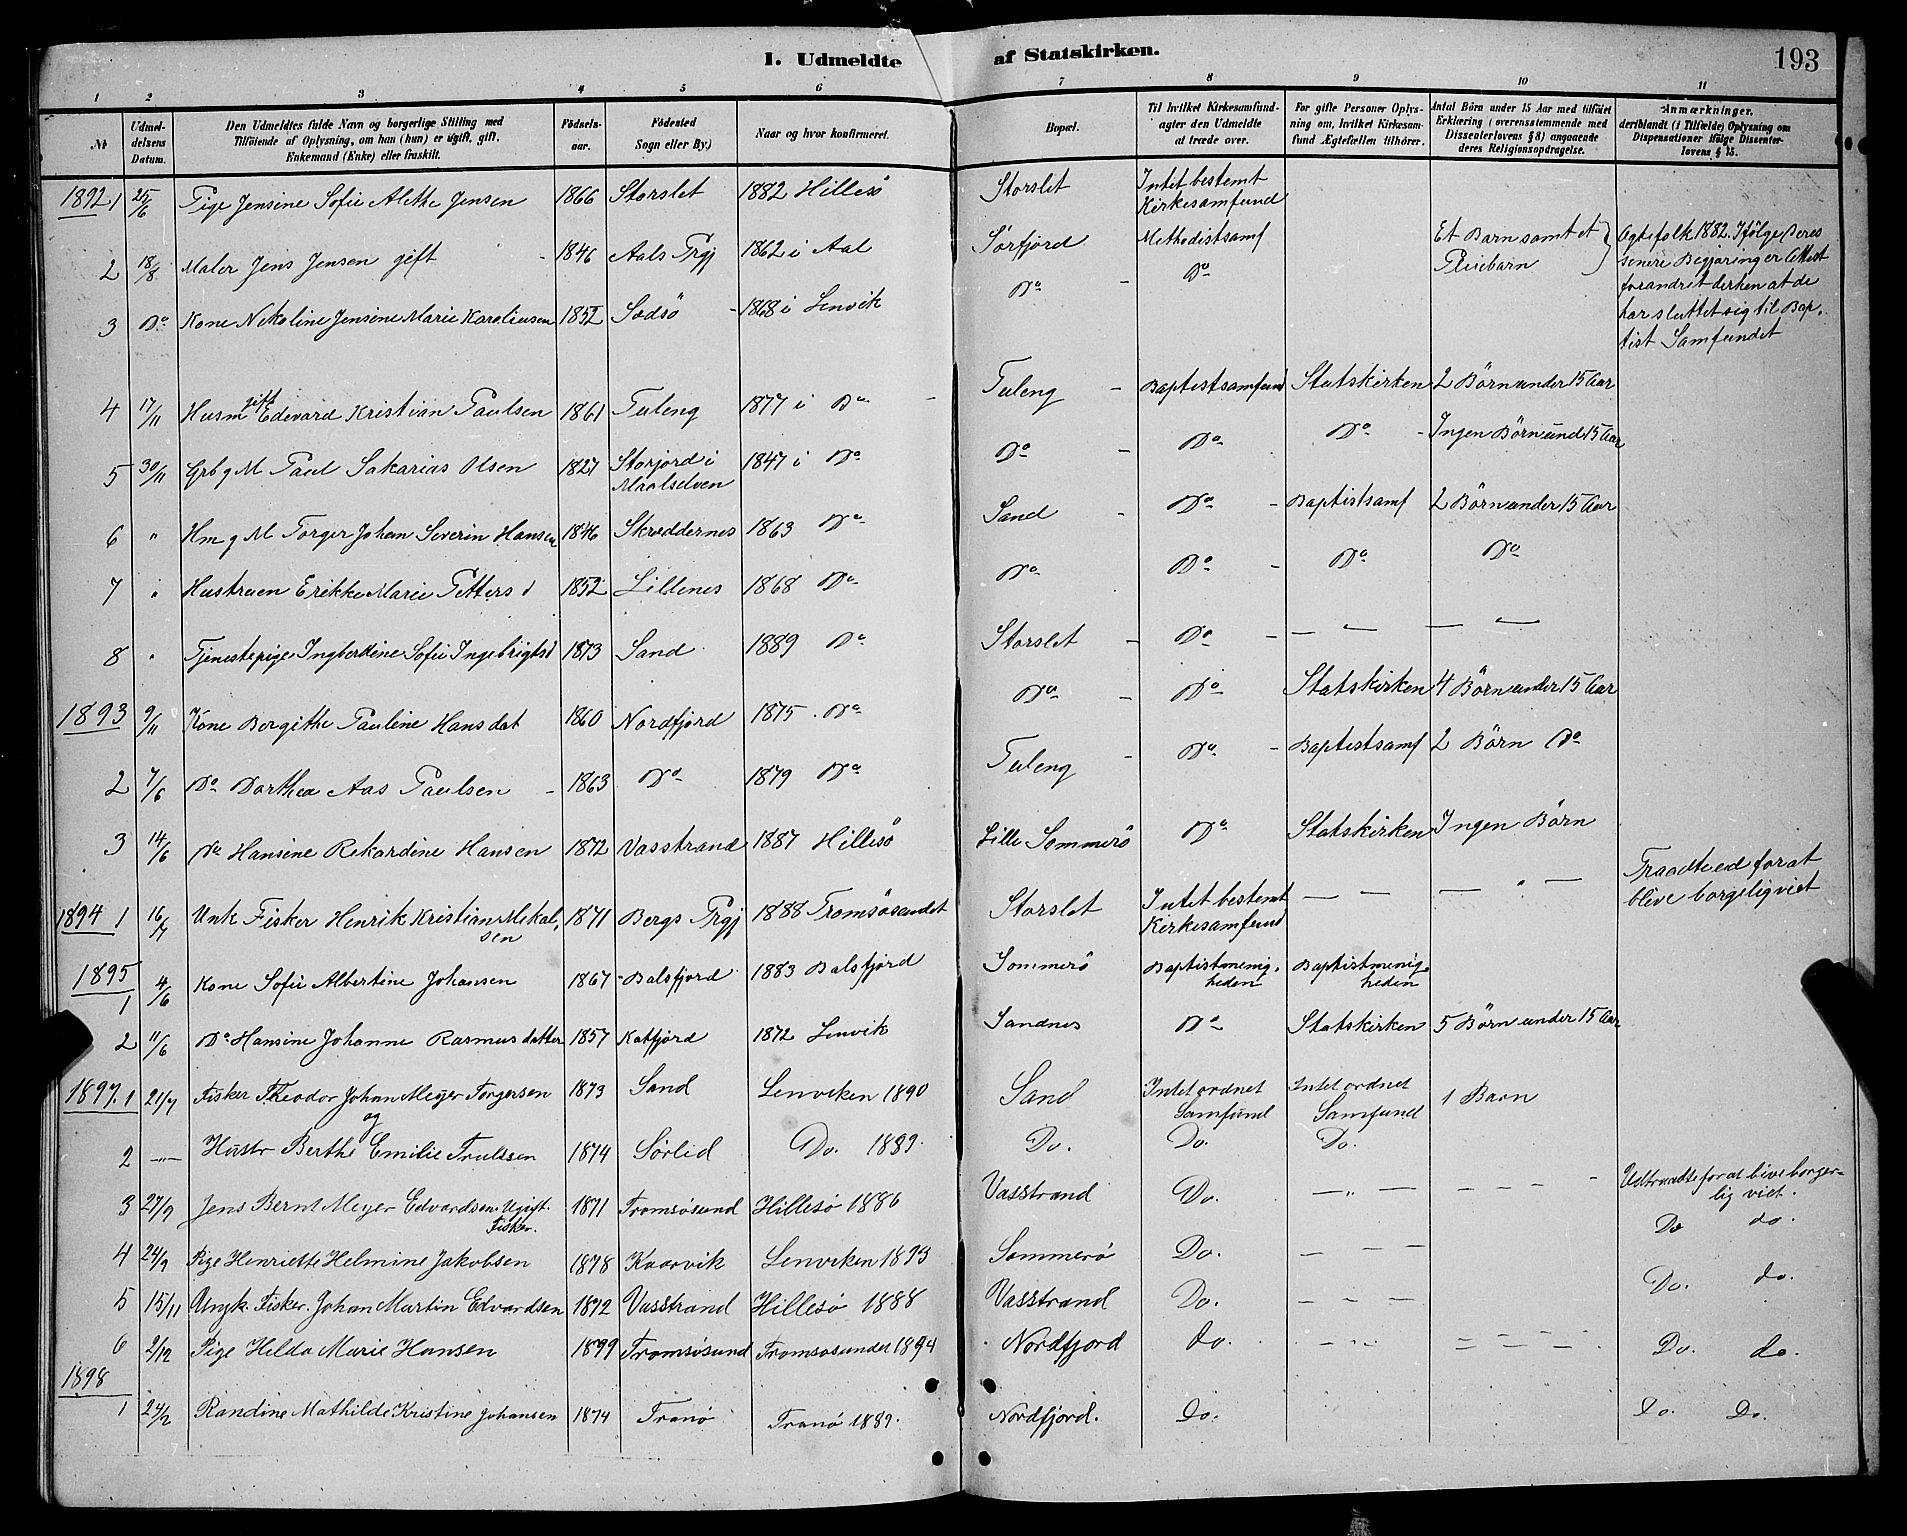 1. Udmeldte af Statskirken. 193
1 2 3 4 5 6 7 8 9 10 11
No
Udmeldelsens Datum.
Den Udmeldtes fulde Navn og borgerlige Stilling med
Tilføiende af Oplysning, om han (hun) er ugift, gift,
Enkemand (Enke) eller fraskilt.
Fødselsaar.
Fødested
Sogn eller By.)
Naar og hvor konfirmeret.
Bopæl.
Til hvilket Kirkesamfund
agter den Udmeldte
at træde over.
For gifte Personer Oplysning om, hvilket Kirkesamfund Ægtefællen tilhører.
Antal Børn under 15 Aar med tilføiet
Erklæring (overensstemmende med
Dissenterlovens § 8) angaaende
deres Religionsopdragelse.
Anmærkninger,
deriblandt (i Tilfælde) Oplysning om
Dispensationer ifølge Dissenterlovens § 15.
1892 1 25/6 Pige Jensine Sofie Alethe Jensen 1866 Storslet 1882 Hillesö Storslet Intet bestemt Kirkesamfund
2 18/8 Maler Jens Jensen gift 1846 Aals Prgj 1862 i Aal Sörfjord Methodistsamf Et Barn samt et Pleiebarn
Ægtefolk 1882. Ifølge Deres
senere Begjæring er Attest
forandret derhen at de
har sluttet sig til Bap.
tist Samfundet
3 Do Kone Nikoline Jensine Marie Karoliusen 1852 Sodsö 1868 i Lenvik Do Do
4 17/11 Husm gift Edevard Kristian Paulsen 1861 Tuleng 1877 i Do Tuleng Baptistsamfund Statskirken 2 Börn under 15 Aar
5 30/11 Grb g M Paul Sakarias Olsen 1827 Storjord i Maalselven 1847 i Do Do Do Do Ingen Börn und 15 Aar
6 " Hm g M Torger Johan Severin Hansen 1846 Skreddernes 1863 Do Sand Do Baptistsamf 2 Börn under 15 Aar
7 " Hustruen Erikke Marie Petters d 1852 Lillenes 1868 Do Do Do Do Do
8 " Tjenestepige Ingberdine Sofie Ingebrigtsd 1873 Sand 1889 Do Storslet Do — — — —
1893 9/11 Kone Bergithe Pauline Hansdat 1860 Nordfjord 1875 Do Do Do Statskirken 4 Börn under 15 Aar
2 7/6 Do Dorthea Aas Paulsen 1863 Do 1879 Do Tuleng Do Baptistsamf 2 Börn Do
3 14/6 Do Hansine Rikardine Hansen 1872 Vasstrand 1887 Hillesö Lille Sommerö Do Statskirken Ingen Börn
1894 1 16/7 Unk Fisker Henrik Kristian Mikalsen 1871 Bergs Prgj 1888 Tromsösundet Storslet Intet bestemt Kirkesamfund — — — " —
Traadte ud for at
blive borgelig viet
1895
1 4/6 Kone Sofie Albertine Johansen 1867 Balsfjord 1883 Balsfjord Sommerö Baptistmenigheden Baptistmenigheden
2 11/6 Do Hansine Johanne Rasmusdatter 1857 Katfjord 1872 Lenvik Sandnes Do Statskirken 5 Börn under 15 Aar
1897. 1 21/7 Fisker Theodor Johan Meyer Torgersen 1873 Sand Lenviken 1890 Sand Intet ordnet Samfund Intet ordnet Samfund 1 Barn
og
2 —"— Hustr Berthe Emilie Trulssen 1874 Sørlid Do. 1889. Do. Do. Do.
3 27/9 Jens Bernt Meyer Edvardsen. Ugift. Fisker. 1871 Tromsøsund Hillesø 1886 Vasstrand Do. — " — — — —
Udtraadte for at blive borger=
lig viet.
4 24/9 Pige Henriette Helmine Jakobsen 1878 Kaarvik Lenviken 1893 Sommerø Do. — — — Do do.
5 15/11 Ungk. Fisker. Johan Martin Edvardsen 1872 Vasstrand Hillesø 1888 Vasstrand Do. — — — Do. do.
6 2/12 Pige Hilda Marie Hansen 1899 Tromsøsund Tromsøsundet 1894 Nordfjord do. Do. do.
1898
1 24/2 Randine Mathilde Kristine Johansen 1874 Tranø Tranø 1889. Nordfjord. do. do. Do.